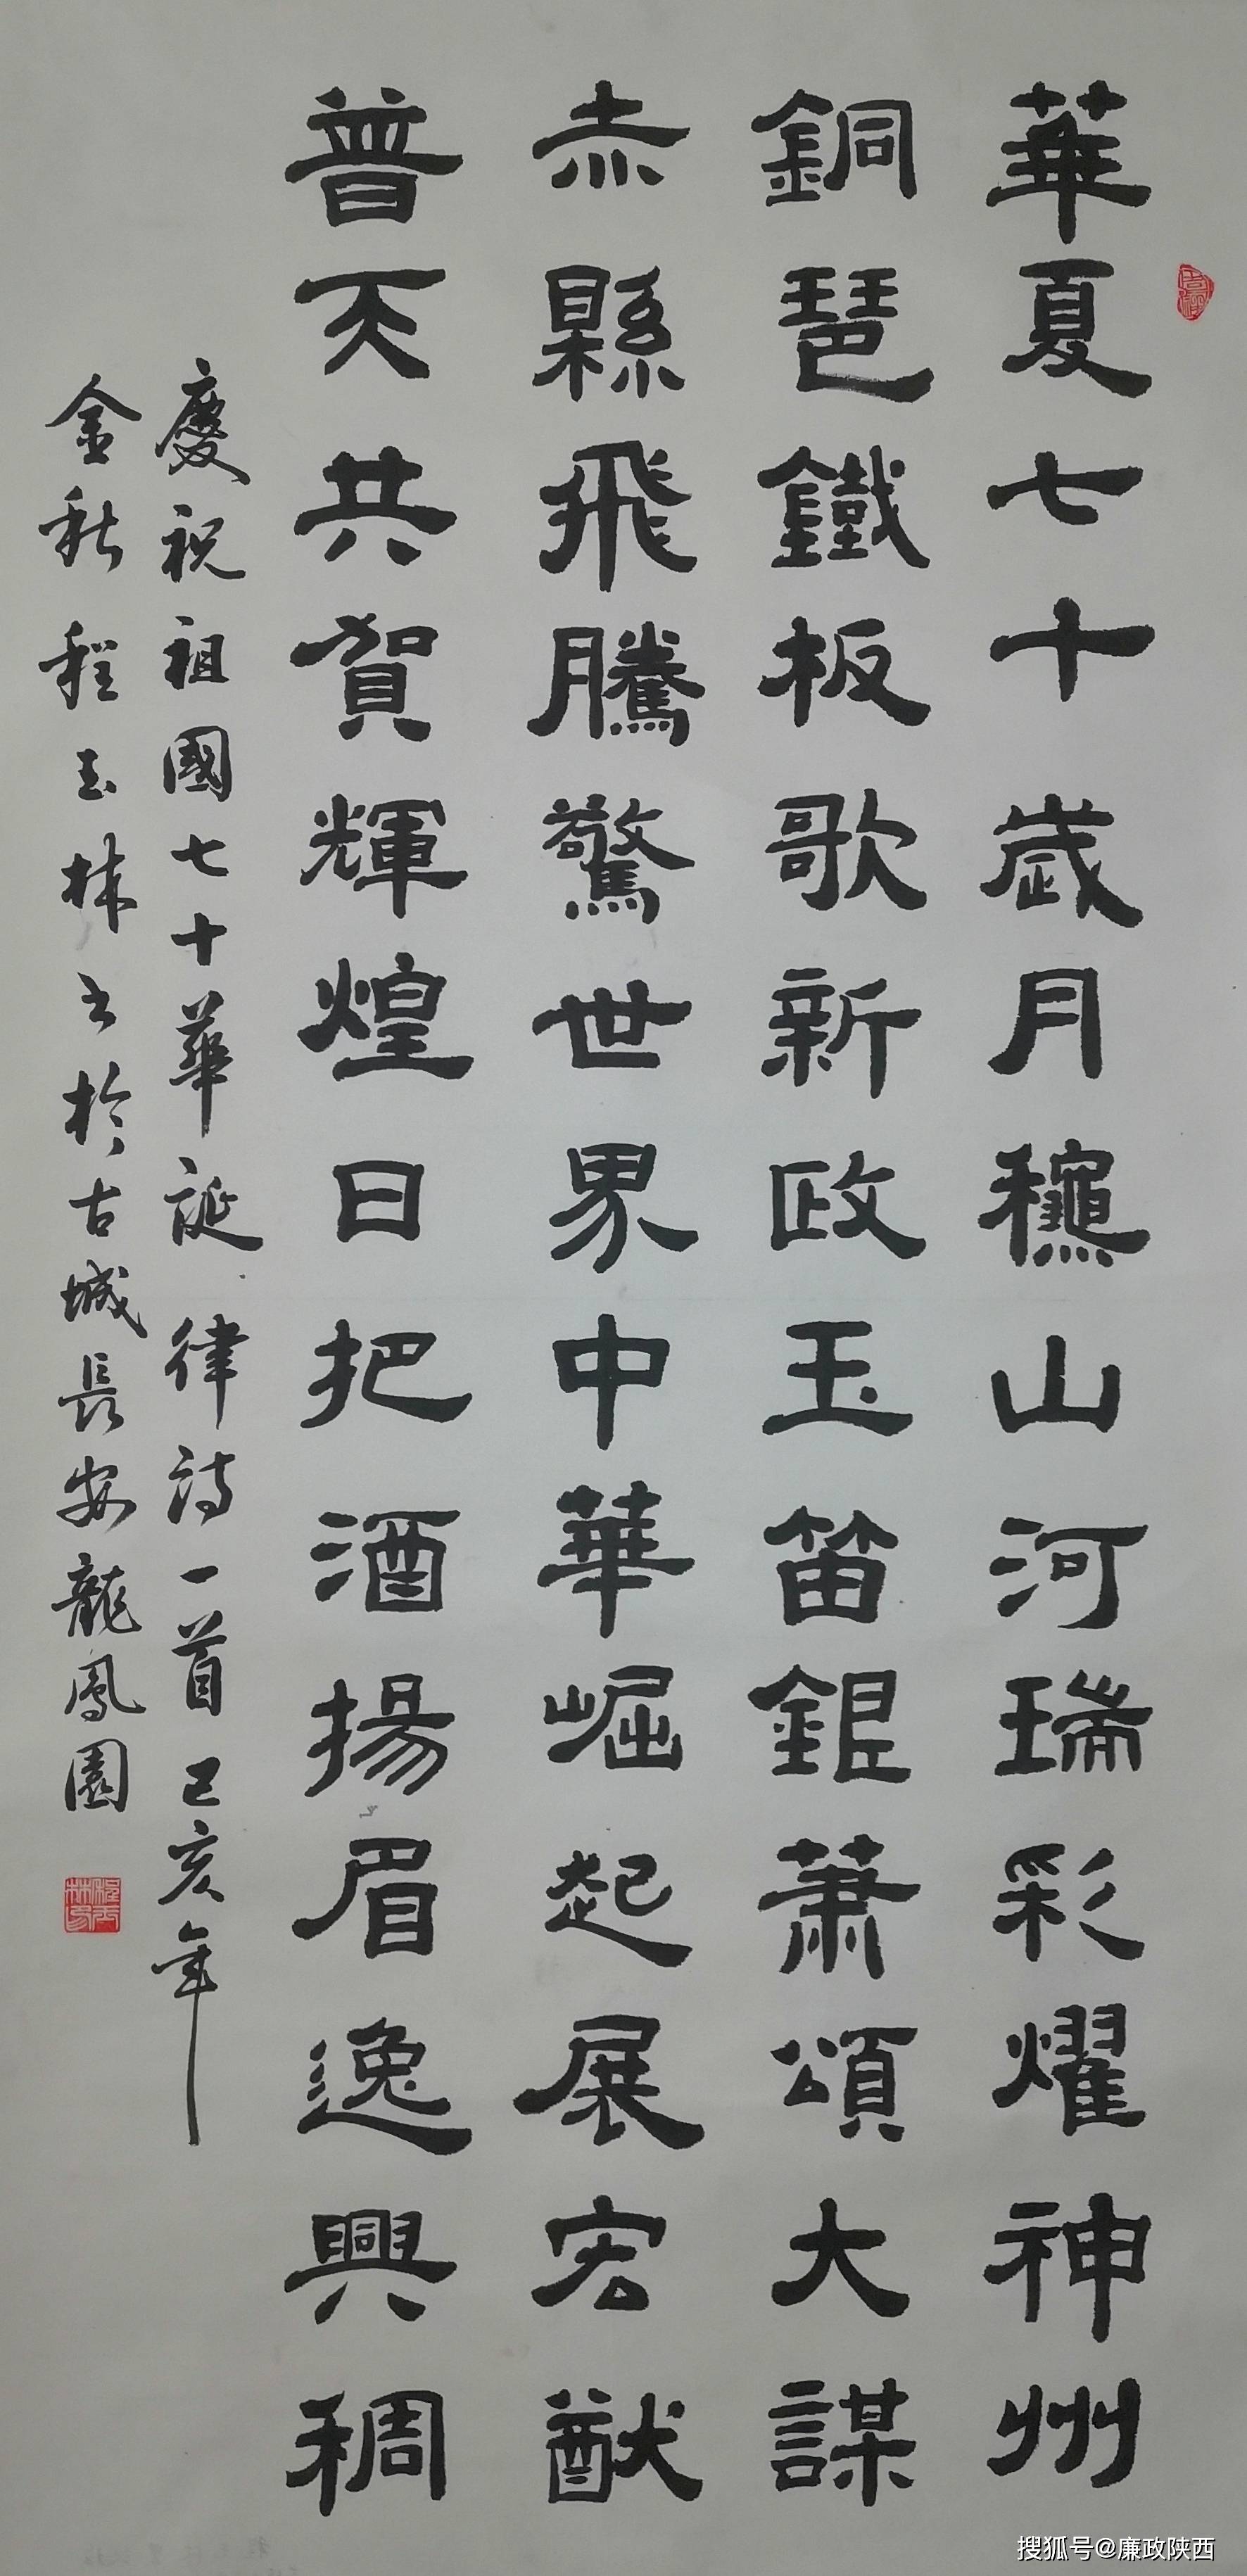 華夏七十歲月龝山河瑞彩耀神州
銅琶鐵板歌新政玉笛銀蕭頌大謀
赤縣飛騰驚世界中華崛起展宏猷
普天共賀輝煌日把酒揚眉逸興稠
慶祝祖國七十華誕律詩一首己亥年
金秋程玉林书於古城長安龍鳳園
程玉林印
搜狐号@廉政陕西